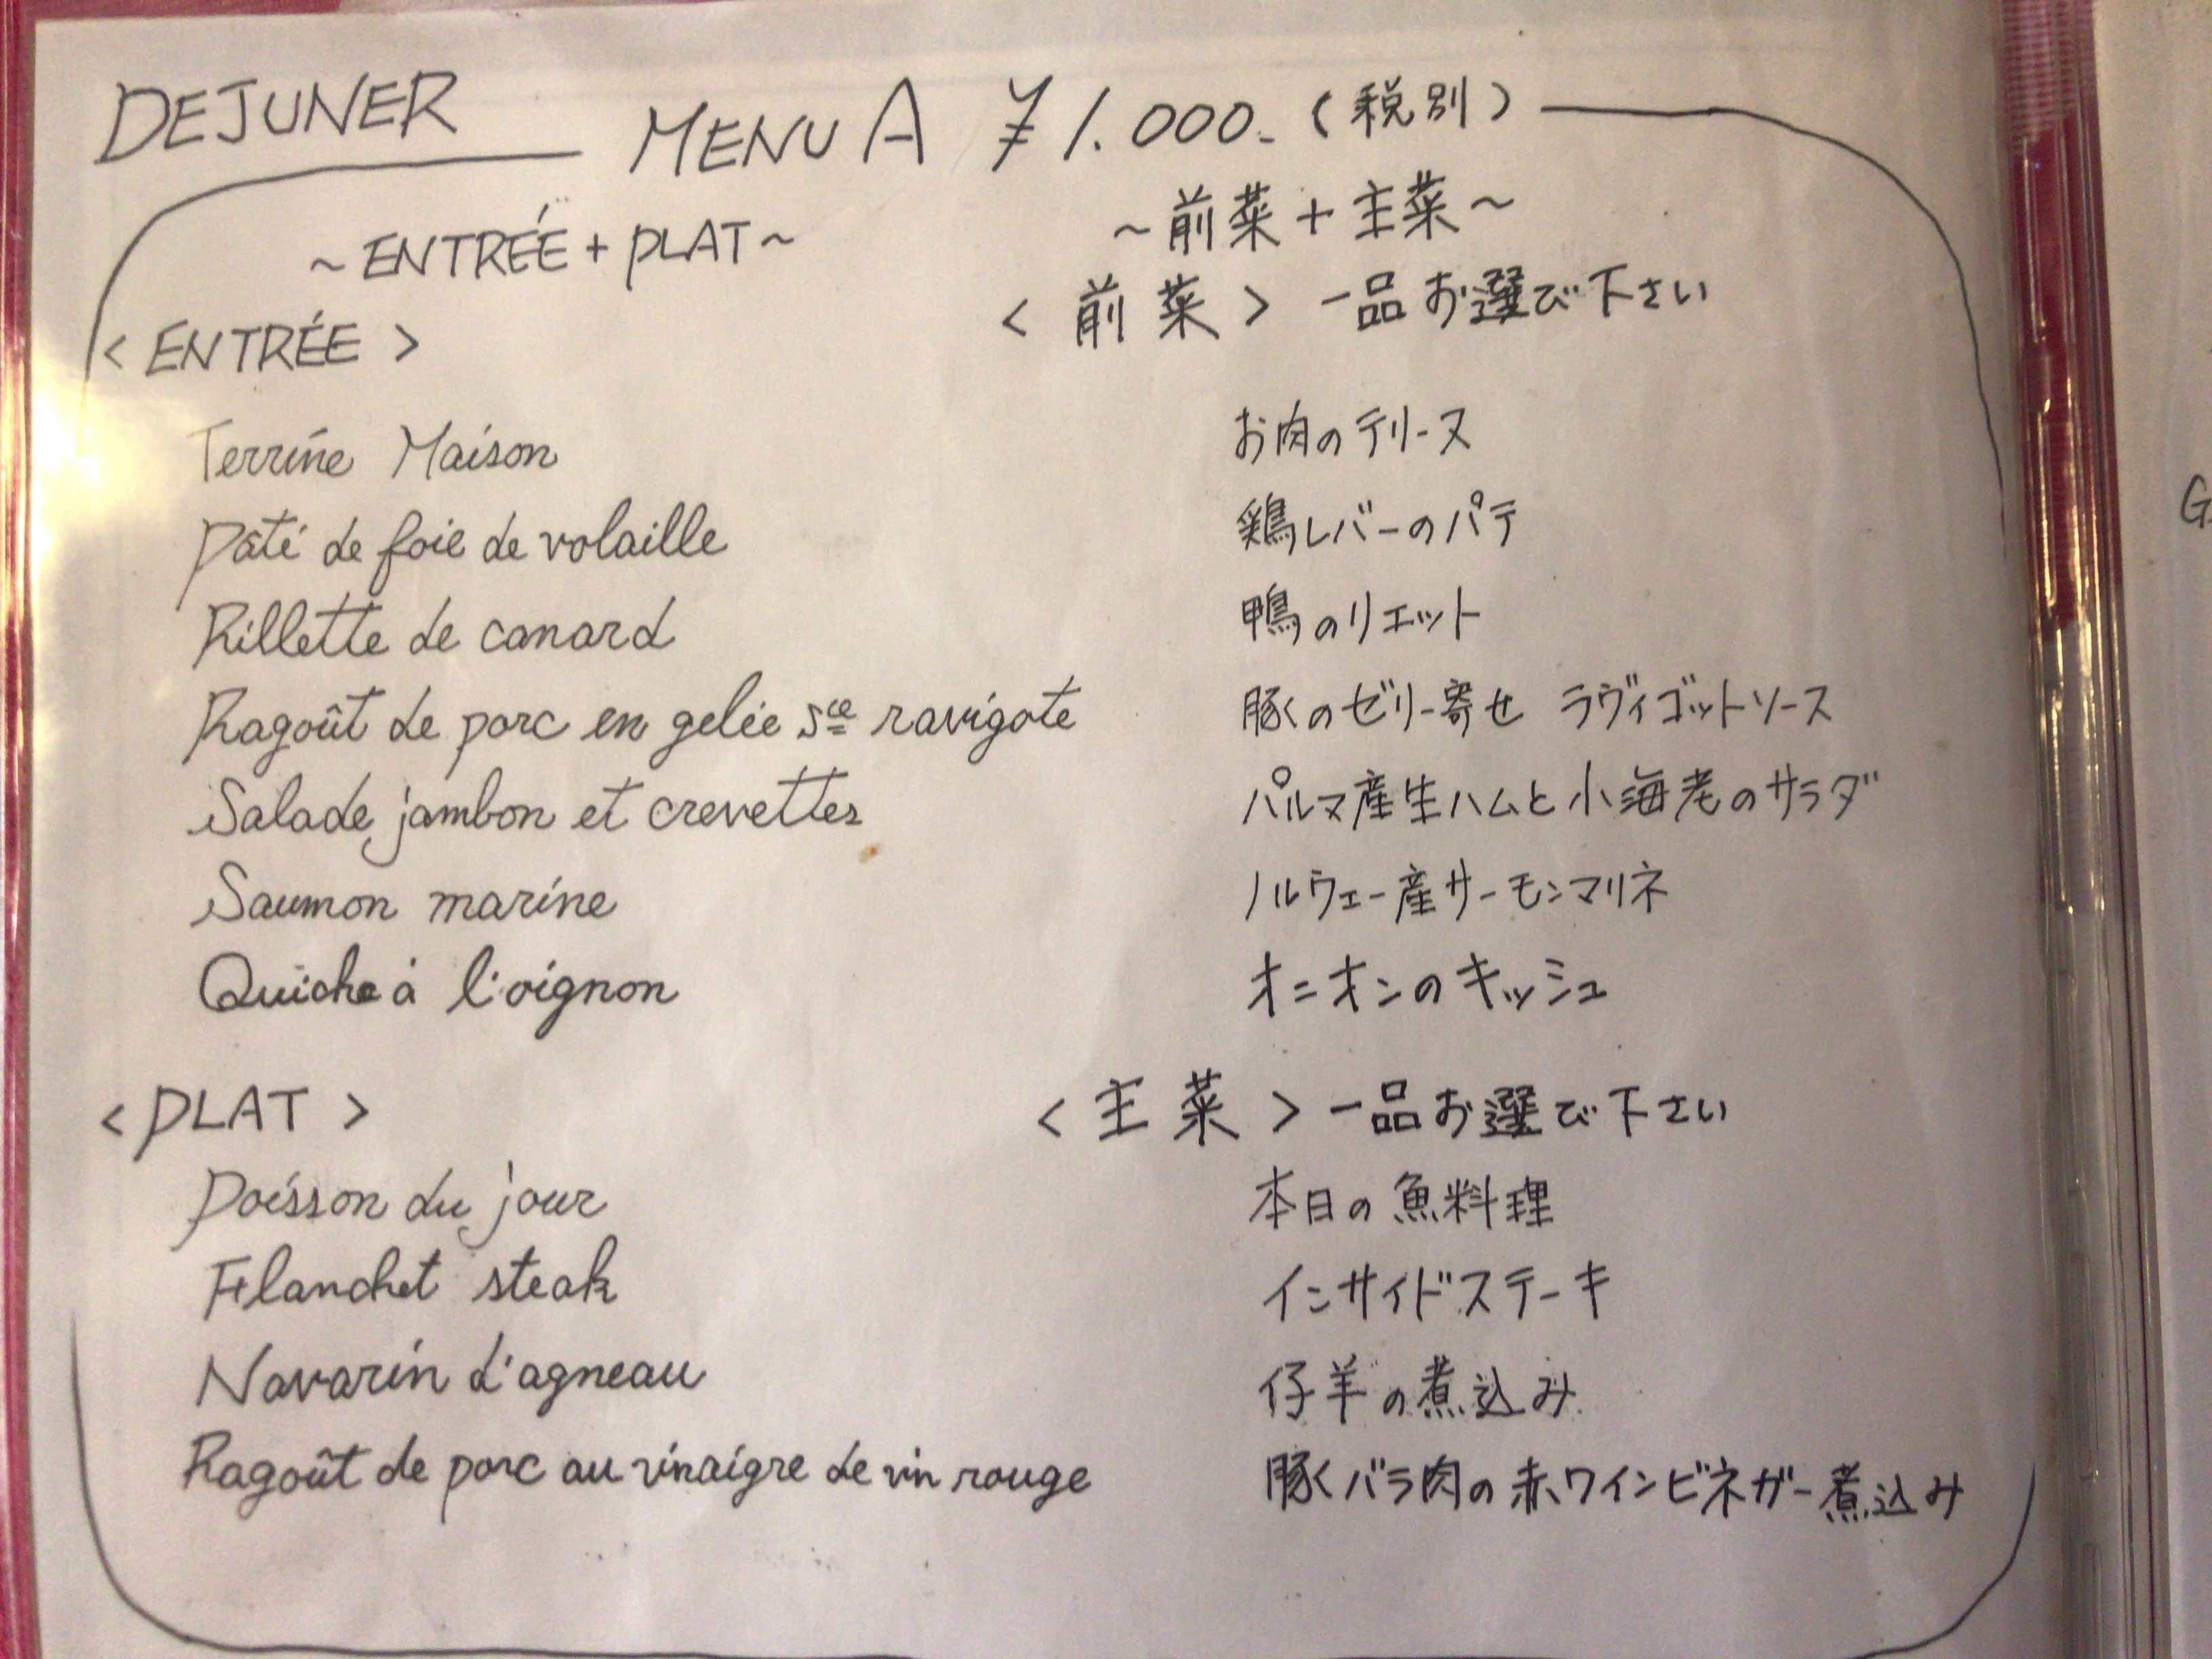 DEJUNER MENU A ¥1.000.- (税別)
~ENTRÉE + PLAT~ ~前菜+主菜~
<ENTRÉE> <前菜> 一品お選び下さい
Terrine Maison お肉のテリーヌ
Pâté de foie de volaille 鶏レバーのパテ
Rillette de canard 鴨のリエット
Ragoût de porc en gelée sce ravigote 豚のゼリー寄せ ラヴィゴットソース
Salade jambon et crevettes パルマ産生ハムと小海老のサラダ
Saumon marine ノルウェー産サーモンマリネ
Quiche à l'oignon オニオンのキッシュ
<PLAT> <主菜> 一品お選び下さい
Poisson du jour 本日の魚料理
Flanchet steak インサイドステーキ
Navarin d'agneau 仔羊の煮込み
Ragoût de porc au vinaigre de vin rouge 豚バラ肉の赤ワインビネガー煮込み
G